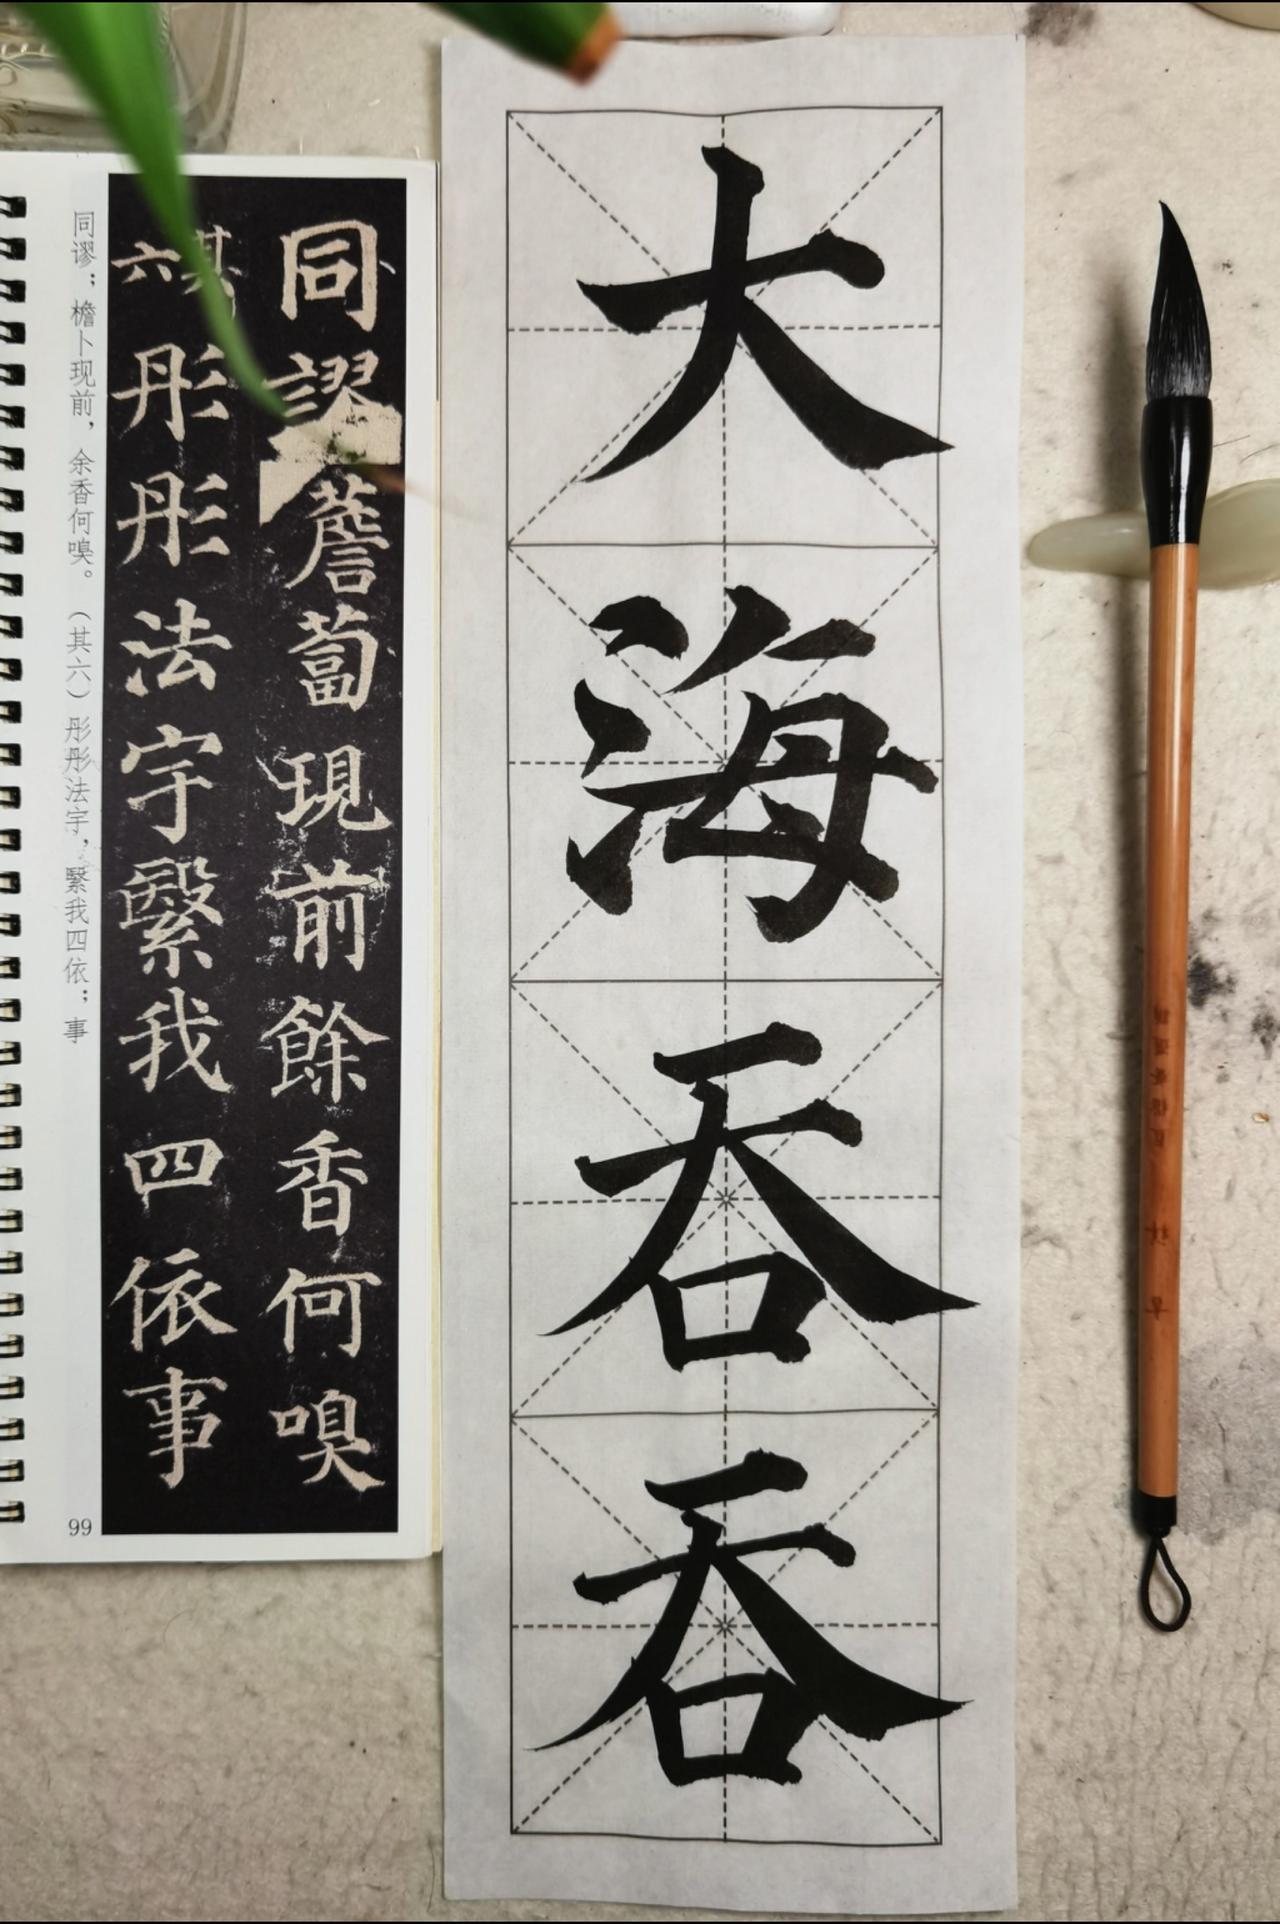 大海吞吞
同謬薝蔔現前餘香何嗅
其六彤彤法宇繄我四依事
同谬；檐卜现前，余香何嗅。（其六）彤彤法宇，繄我四依；事
99